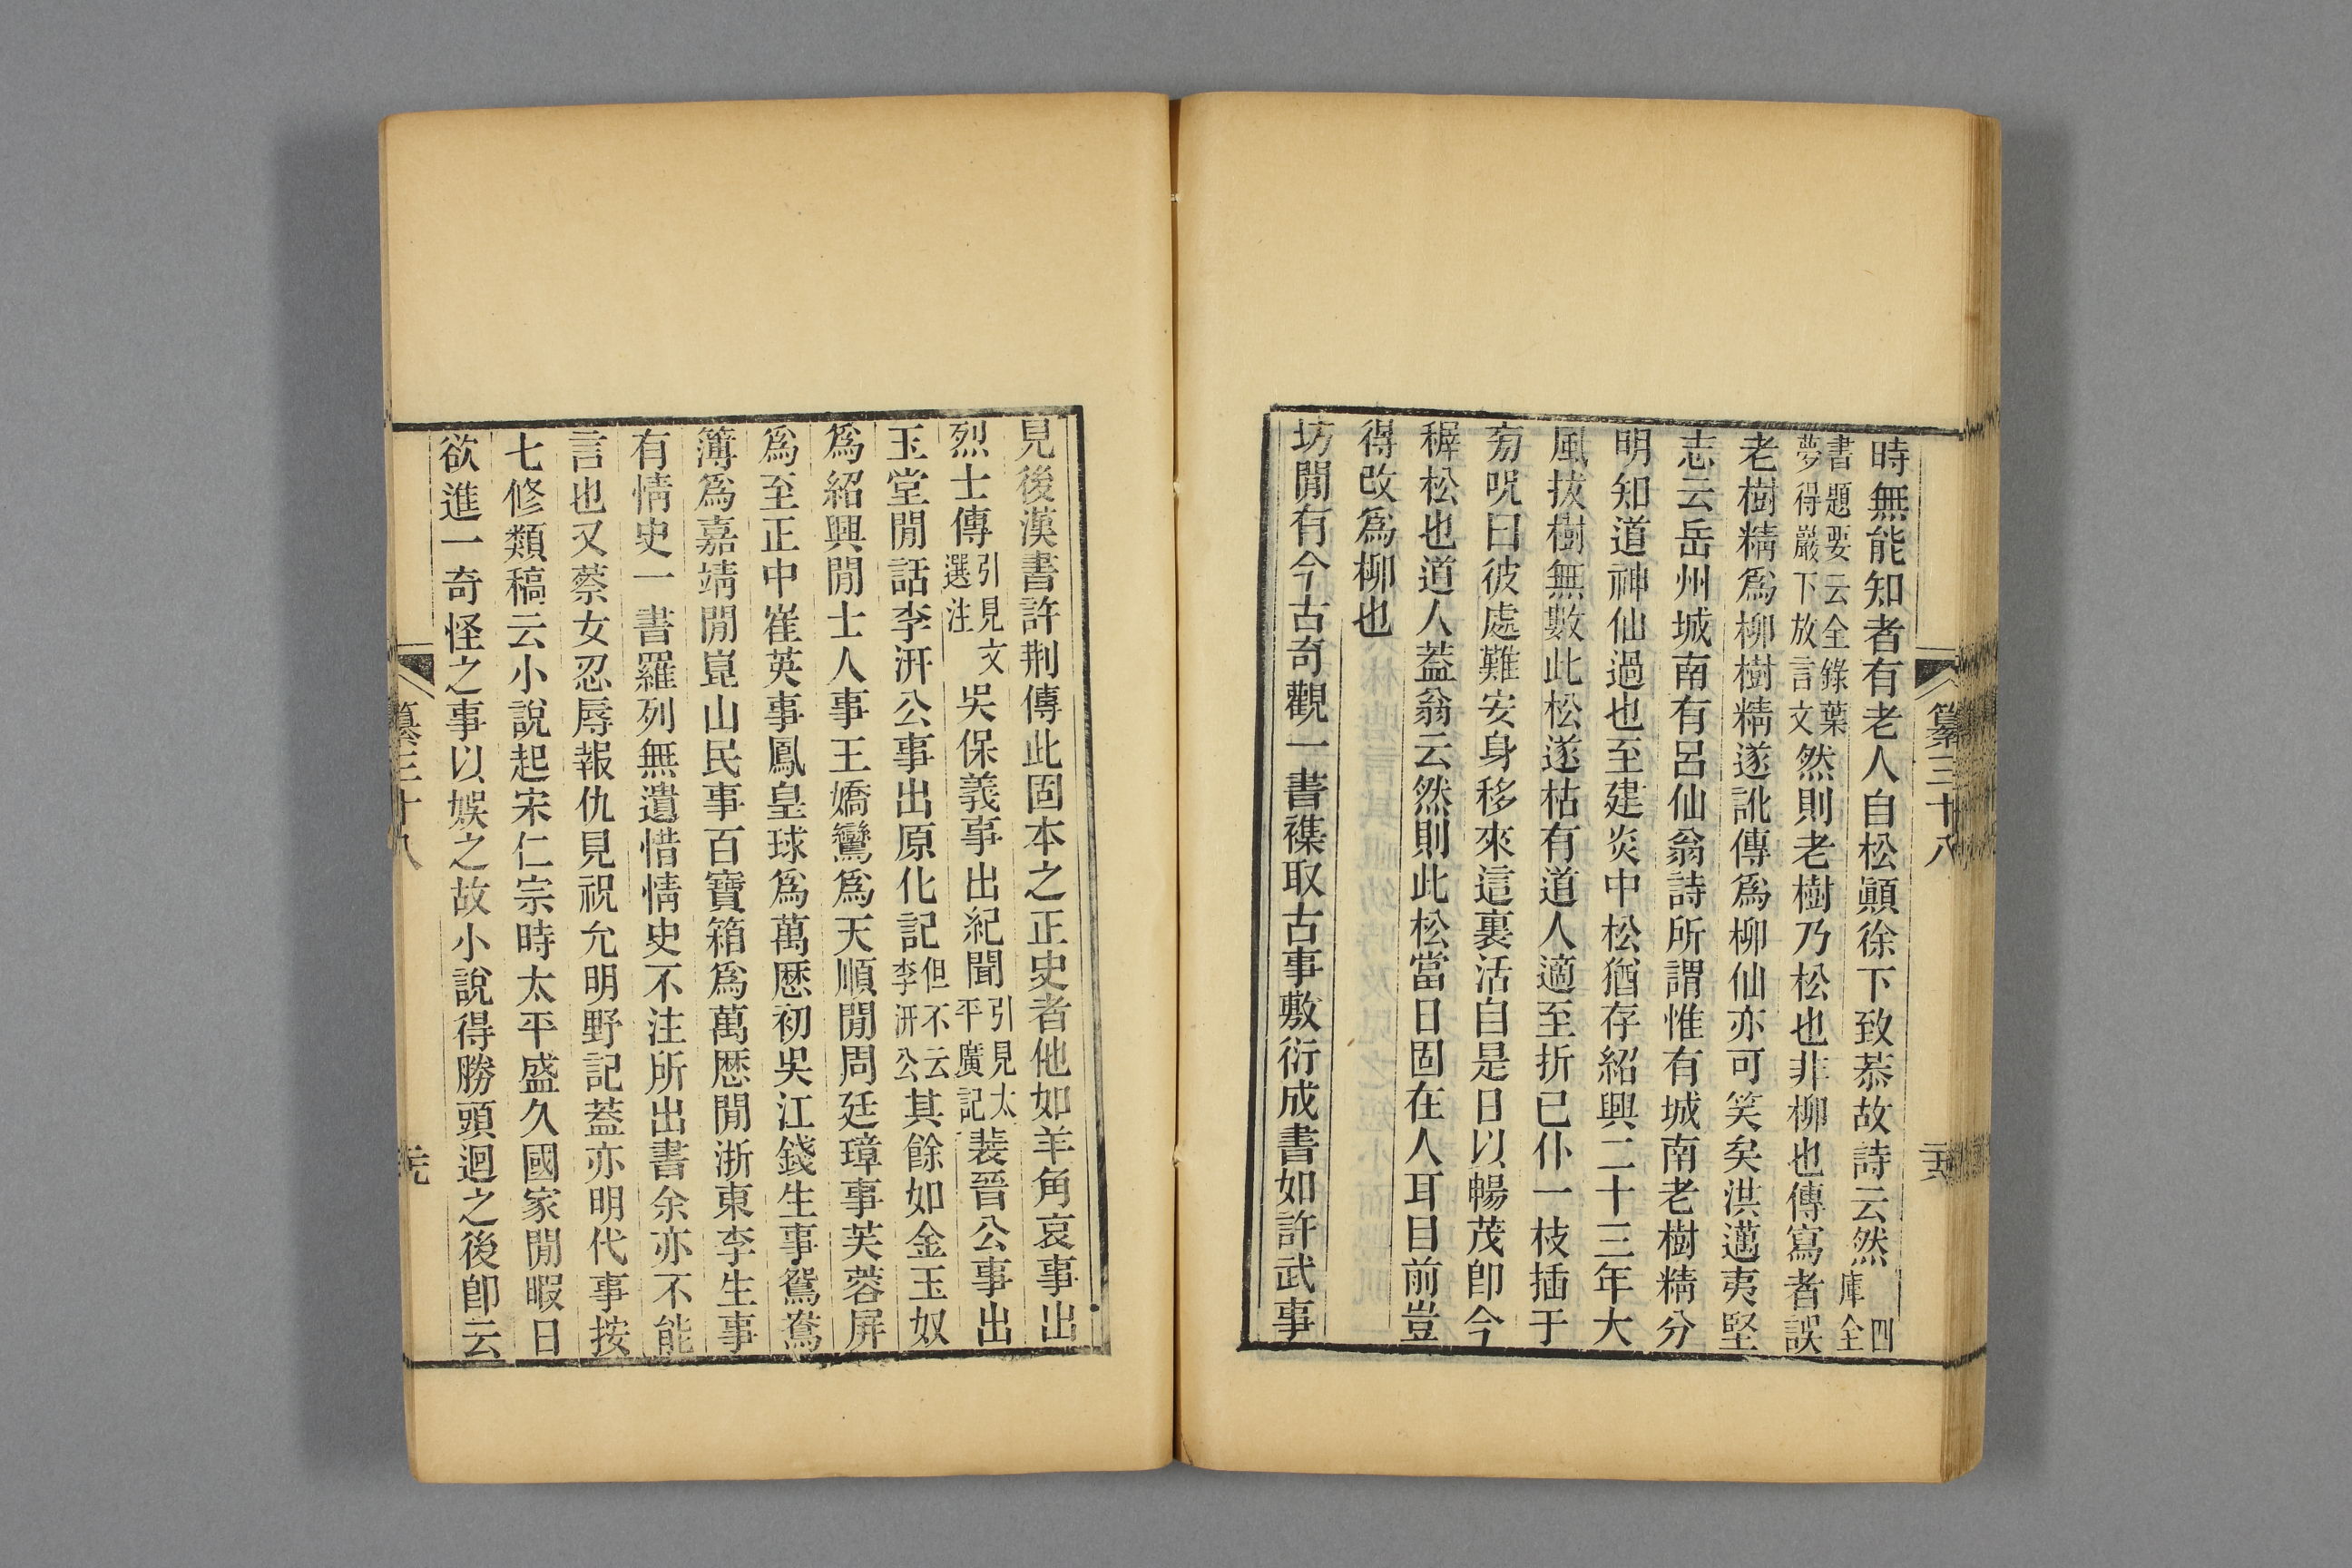 纂三十八
時無能知者有老人自松顚徐下致恭故詩云然四庫全
書題要云全錄葉夢得巖下放言文然則老樹乃松也非柳也傳寫者誤
老樹精爲柳樹精遂訛傳爲柳仙亦可笑矣洪邁夷堅
志云岳州城南有呂仙翁詩所謂惟有城南老樹精分
明知道神仙過也至建炎中松猶存紹興二十三年大
風拔樹無數此松遂枯有道人適至折已仆一枝插于
旁呪曰彼處難安身移來這裏活自是日以暢茂卽今
穉松也道人葢翁云然則此松當日固在人耳目前豈
得改爲柳也
坊閒有今古奇觀一書襍取古事敷衍成書如許武事
見後漢書許荆傳此固本之正史者他如羊角哀事出
烈士傳引見文選注吳保義事出紀聞引見太平廣記裴晉公事出
玉堂閒話李汧公事出原化記但不云李汧公其餘如金玉奴
爲紹興閒士人事王嬌鸞爲天順閒周廷璋事芙蓉屏
爲至正中崔英事鳳皇球爲萬厯初吳江錢生事鴛鴦
簿爲嘉靖閒崑山民事百寶箱爲萬厯閒浙東李生事
有情史一書羅列無遺惜情史不注所出書余亦不能
言也又蔡女忍辱報仇見祝允明野記葢亦明代事按
七修類稿云小說起宋仁宗時太平盛久國家閒暇日
欲進一奇怪之事以娛之故小說得勝頭迴之後卽云
纂三十八